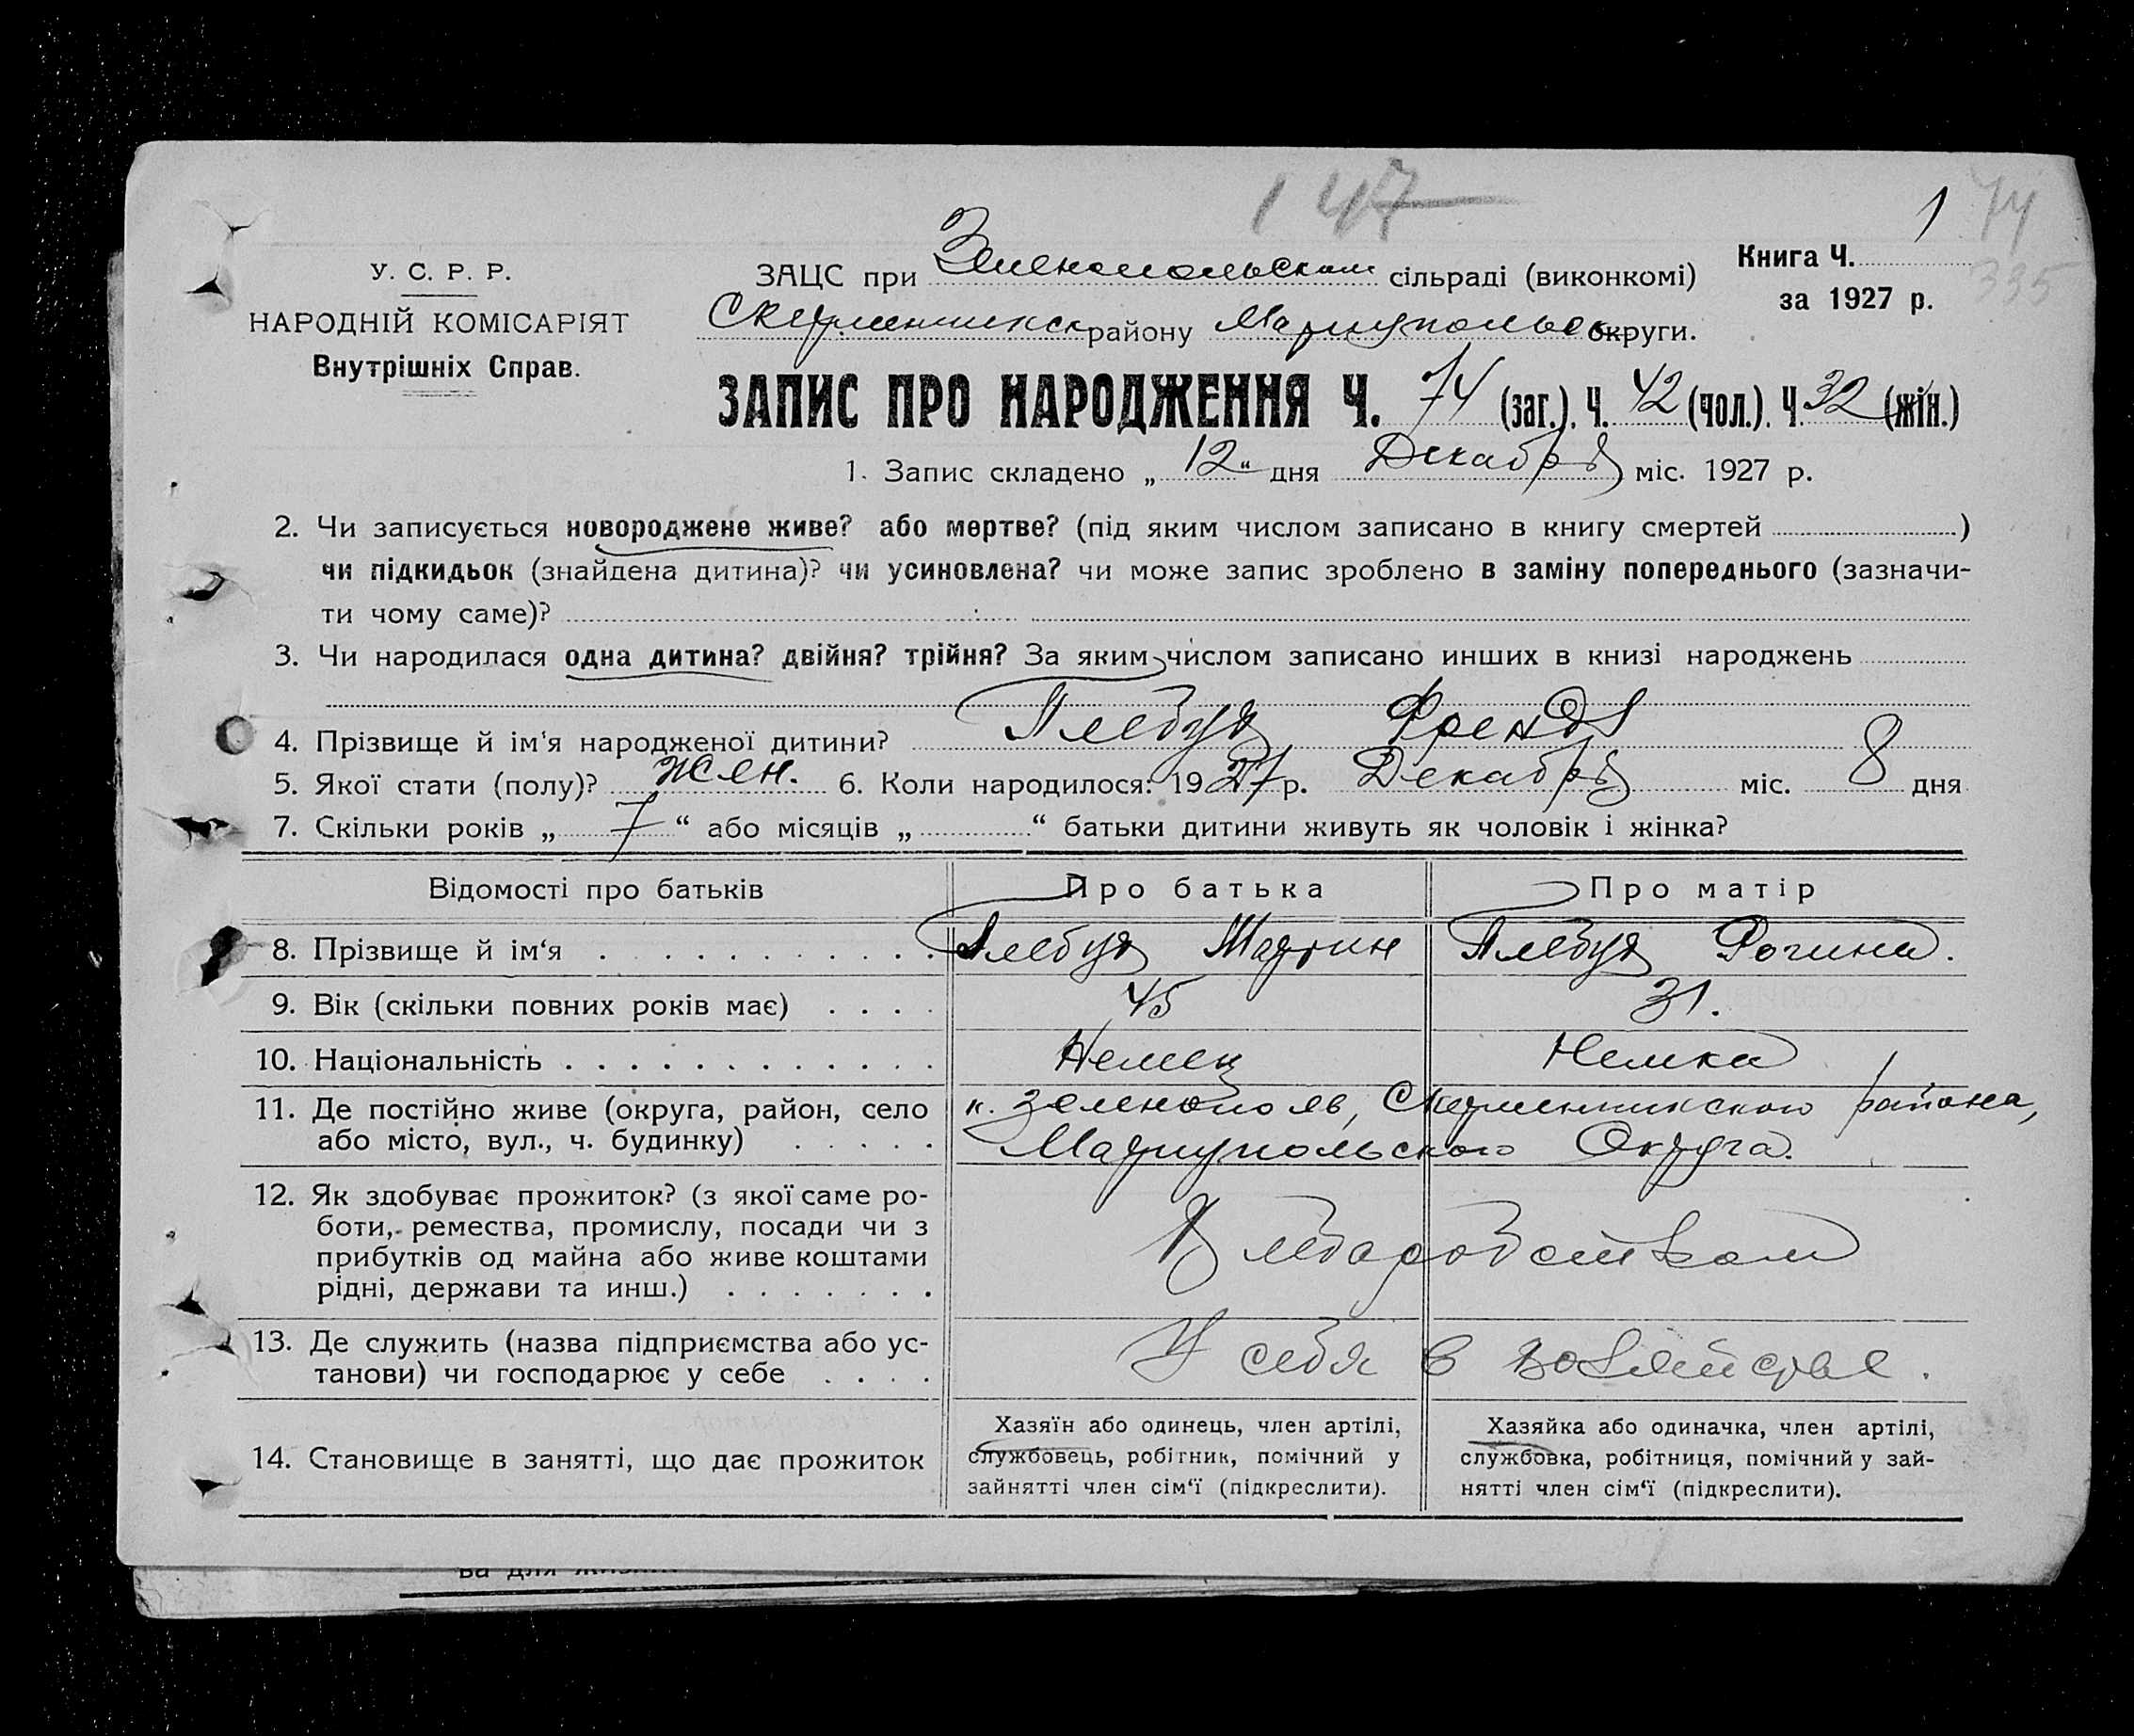 147
1 74
Книга Ч.
335
за 1927 р.
У. С. Р. Р.
НАРОДНІЙ КОМІСАРІЯТ
Внутрішніх Справ.
ЗАЦС при Зеленопольском сільраді (виконкомі)
району Мариупольск округи.
ЗАПИС ПРО НАРОДЖЕННЯ Ч. 74 (заг.). Ч. 42 (чол.). Ч. 32 (жін.)
1. Запис складено „ 12 “ дня Декабря міс. 1927 р.
2. Чи записується новороджене живе? або мертве? (під яким числом записано в книгу смертей )
чи підкидьок (знайдена дитина)? чи усиновлена? чи може запис зроблено в заміну попереднього (зазначи-
ти чому саме)?
3. Чи народилася одна дитина? двійня? трійня? За яким числом записано инших в книзі народжень
4. Прізвище й ім‘я народженої дитини?
5. Якої стати (полу)? жен. 6. Коли народилося: 1927 р. Декабря міс. 8 дня
7. Скільки років „ 7 “ або місяців „ “ батьки дитини живуть як чоловік і жінка?
Відомості про батьків Про батька Про матір
8. Прізвище й ім‘я Мартин
9. Вік (скільки повних років має) 45 31.
10. Національність Немец Немка
11. Де постійно живе (округа, район, село к. Зеленополь, района,
або місто, вул., ч. будинку) Мариупольского Округа.
12. Як здобуває прожиток? (з якої саме ро-
боти, ремества, промислу, посади чи з
прибутків од майна або живе коштами Хлебаробством
рідні, держави та инш.)
13. Де служить (назва підприємства або ус-
танови) чи господарює у себе У себя в хозяйстве.
14. Становище в занятті, що дає прожиток
Хазяїн або одинець, член артілі,
службовець, робітник, помічний у
зайнятті член сім‘ї (підкреслити).
Хазяйка або одиначка, член артілі,
службовка, робітниця, помічний у зай-
нятті член сім‘ї (підкреслити).